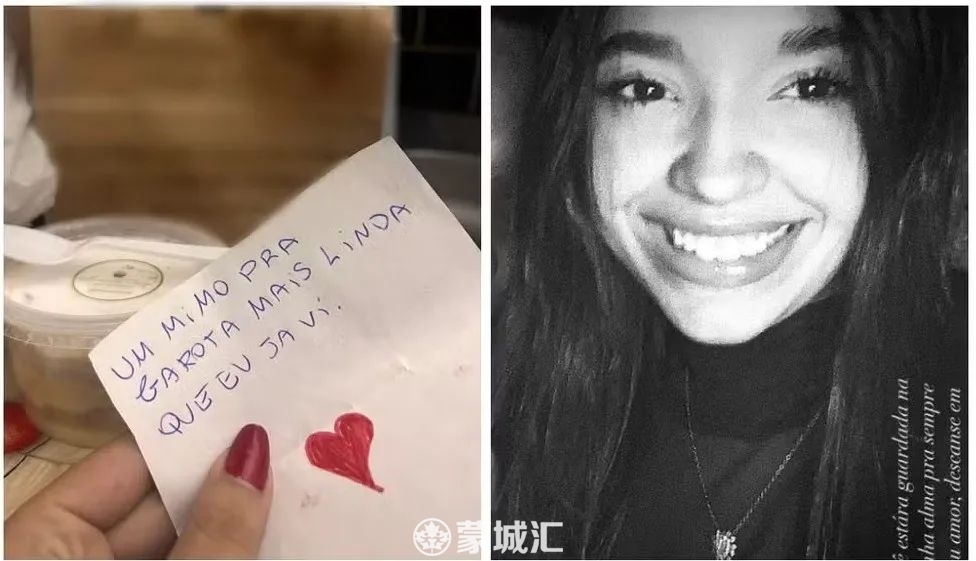 UM MIMO PRA
GAROTA MAIS LINDA
QUE EU JA VI.
ê estára guardada na
nha alma pra sempre
u amor, descanse em
蒙城汇